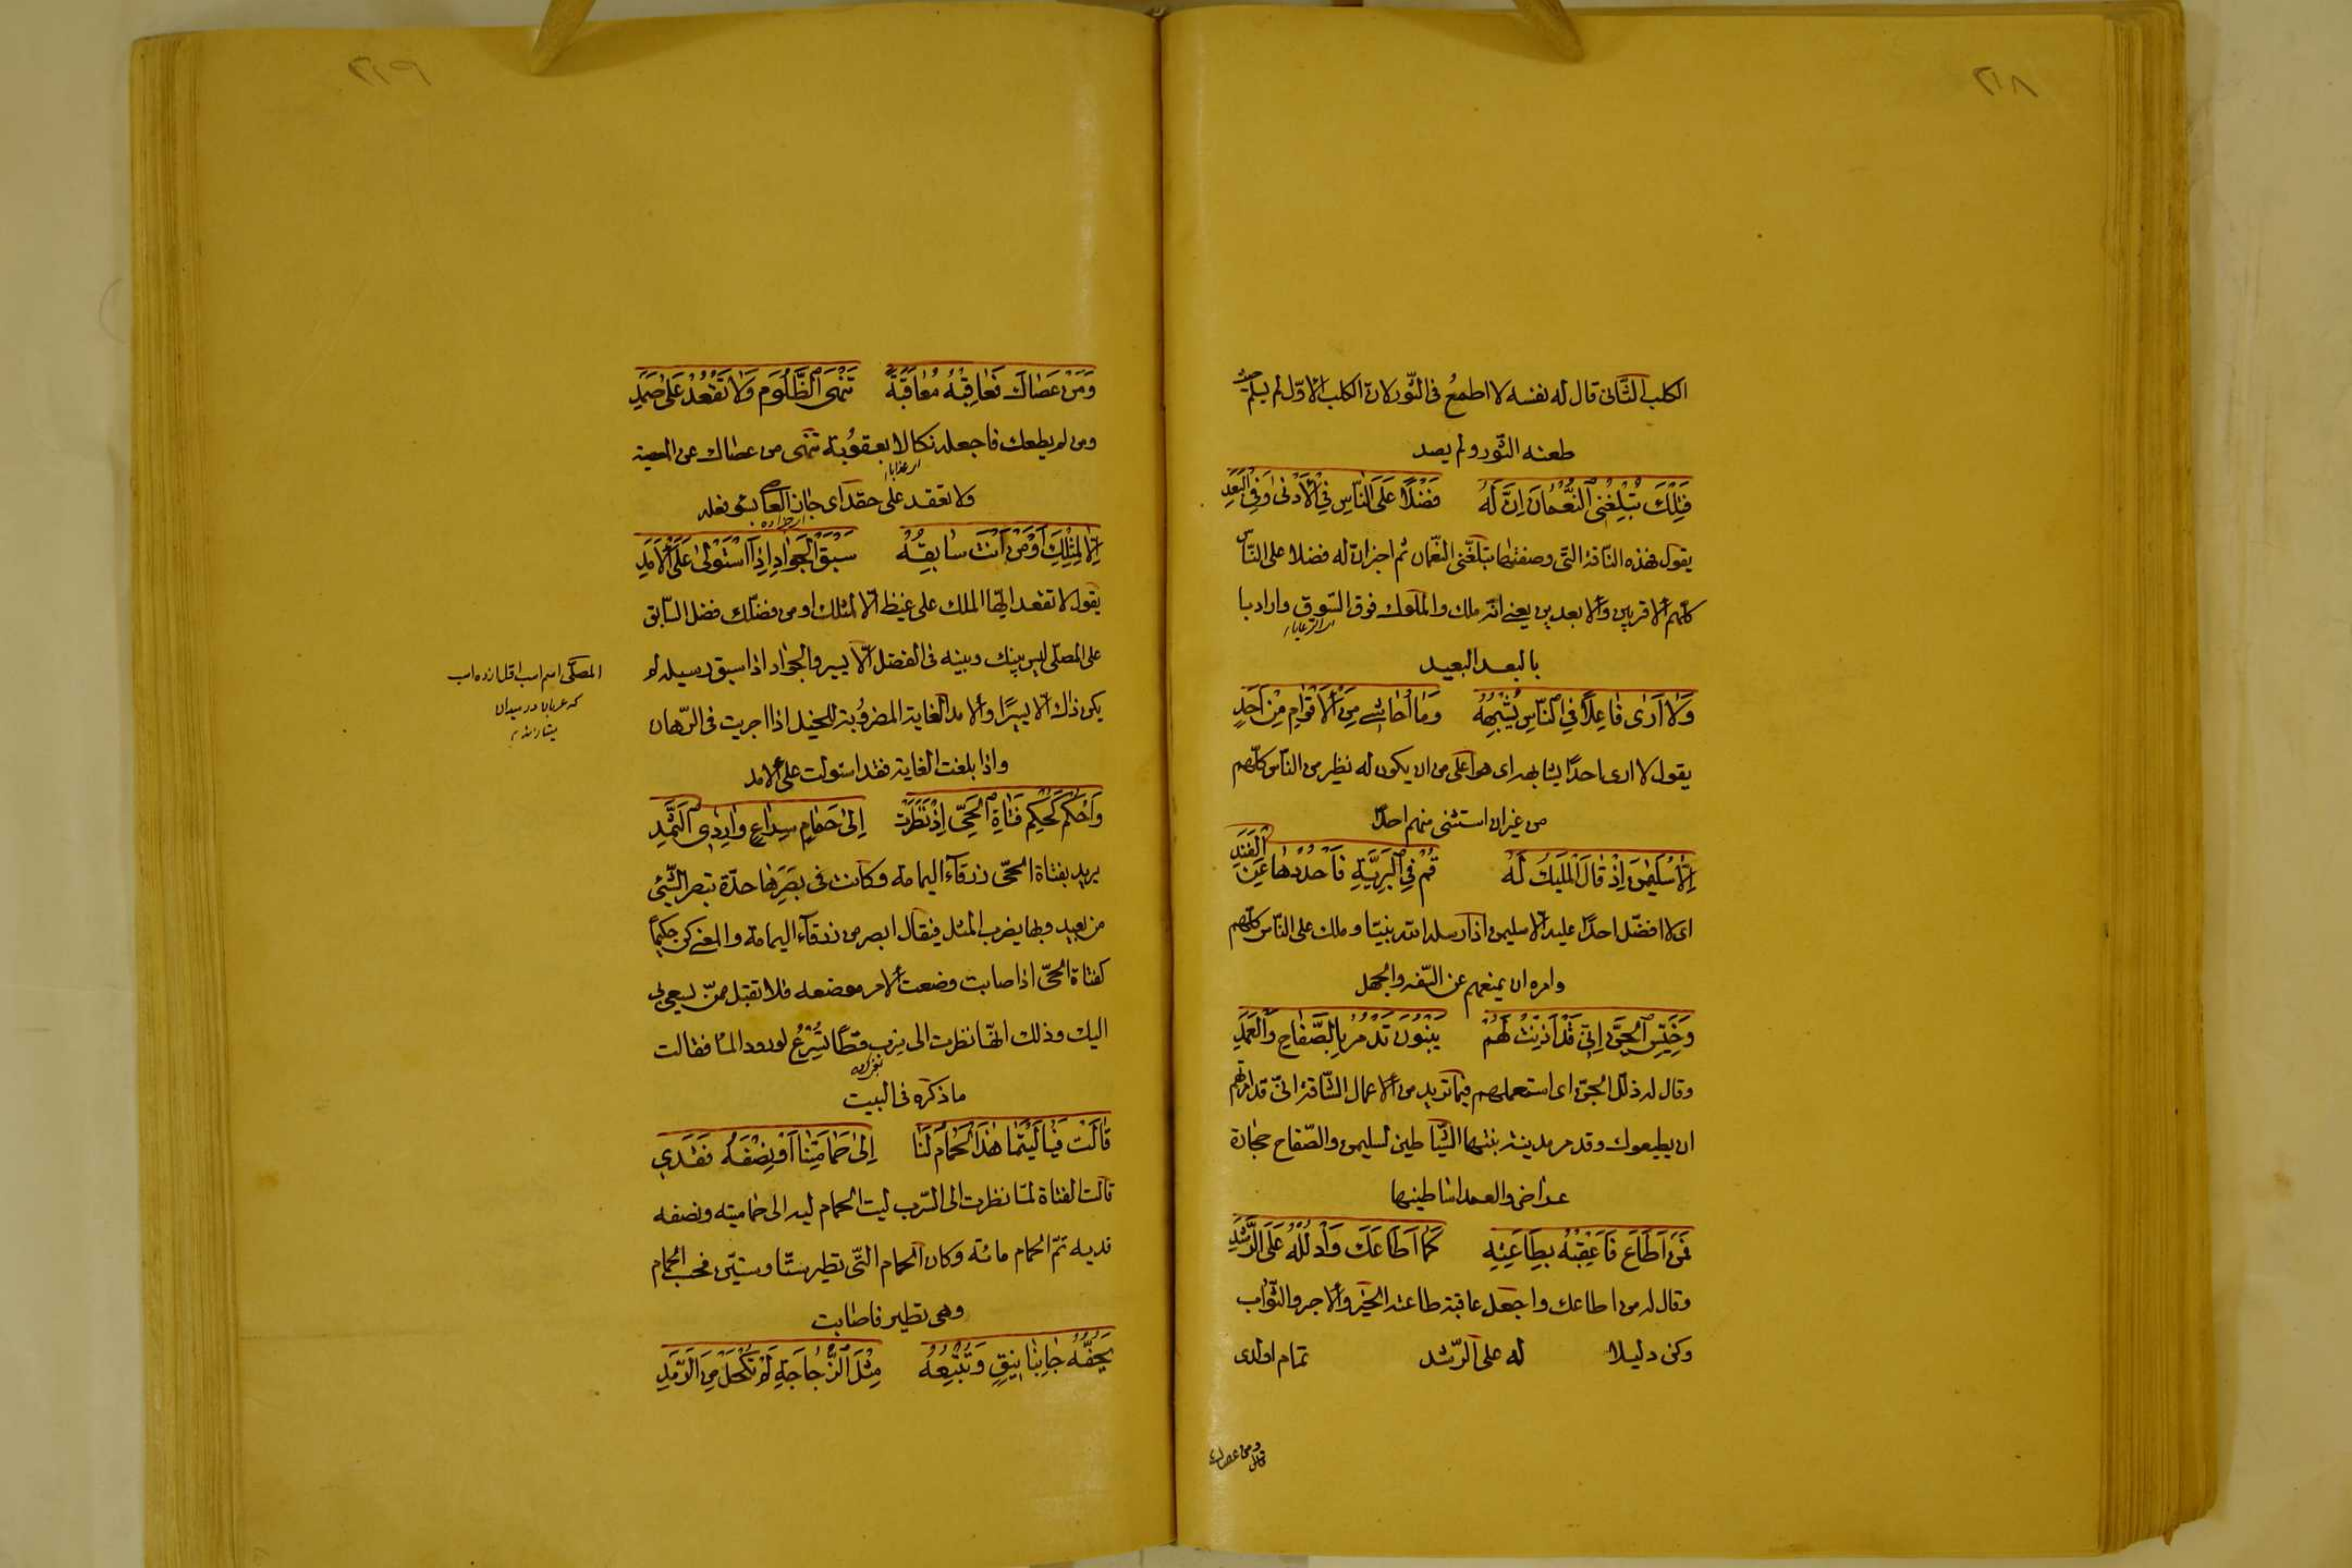 الكلب الثانى قال له نفسه لا اطمع فى الثّور لانّ الكلب الاوّل لم يسلم حيث
طعنه الثّور ولم يصد
فَتِلْكَ تُبْلِغُنِى النُّعْمَانَ اِنَّ لَهُ فَضْلًا عَلَى النَّاسِ فِى الْأَدْنٰى وَفِى الْبَعَدِ
يقول فهذه النّاقة التى وصفتها تبلّغنى النّعمان ثم اخبر انّ له فضلا على النّاس
كلّهم الاقربين والابعدين يعنى انّه ملك والملوك فوق السّوق واراد با
اى الرعايا
بالبعد البعيد
وَلَا اَرٰى فَاعِلًا فِى النَّاسِ يُشْبِهُهُ وَمَا اُحَاشِى مِنَ الْاَقْوَامِ مِنْ اَحَدٍ
يقول لا ارى احدًا يشابهه اى هو اعلى من ان يكون له نظير من النّاس كلّهم
من غير ان استثنى منهم احدًا
اِلَّا سُلَيْمٰنَ اِذْ قَالَ الْمَلِيكُ لَهُ قُمْ فِى الْبَرِيَّةِ فَاحْدُدْهَا عَنِ الْفَنَدِ
اى لا افضّل احدًا عليه الّا سليمن اذ ارسله الله نبيّا وملك على النّاس كلّهم
وامره ان يمنعهم عن السّفه والجهل
وَخَيِّسِ الْجِنَّ اِنِّى قَدْ اَذِنْتُ لَهُمْ يَبْنُونَ تَدْمُرَ بِالصُّفَّاحِ وَالْعَمَدِ
وقال له ذلّل الجنّ اى استعملهم فيما تريد من الاعمال الشّاقة انّى قد امرتهم
ان يطيعوك وتدمر مدينة بنتها الشّياطين لسليمن والصّفاح حجارة
عراض والعمد اساطينها
فَمَنْ اَطَاعَ فَاَعْقِبْهُ بِطَاعَتِهِ كَمَا اَطَاعَكَ وَادْلُلْهُ عَلَى الرَّشَدِ
وقال له من اطاعك واجعل عاقبة طاعته الخير والاجر والثّواب
وكن دليلا له على الرّشد تمام اولدى
ومن عصاك
وَمَنْ عَصَاكَ فَعَاقِبْهُ مُعَاقَبَةً تَنْهَى الظَّلُومَ وَلَا تَقْعُدْ عَلٰى ضَمَدِ
ومن لم يطعك فاجعله نكالا بعقوبة تنهى من عصاك عن المعصية
اى عذابا
ولا تعقد على حقد اى جاز العاصى بسوء فعله
اِلَّا لِمِثْلِكَ اَوْ مَنْ اَنْتَ سَابِقُهُ سَبْقَ الْجَوَادِ اِذَا اسْتَوْلٰى عَلَى الْاَمَدِ
يقول لا تقعد ايّها الملك على غيظ الّا لمثلك او من فضلك فضل السّابق
على المصلّى ليس بينك وبينه فى الفضل الّا يسير والجواد اذا سبق رسيله لم
يكن ذاك الا يسيرًا والامد الغاية المضروبة للخيل اذا اجريت فى الرّهان
واذا بلغت الغاية فقد استولت على الامد
المصلّى اسم اسب
در ميدان
وَاحْكُمْ كَحُكْمِ فَتَاةِ الْحَىِّ اِذْ نَظَرَتْ اِلٰى حَمَامٍ سِرَاعٍ وَارِدِى الثَّمَدِ
يريد بفتاة الحىّ زرقاء اليمامة وكانت فى بصرها حدّة تبصر الشّئ
من بعيد وبها يضرب المثل فيقال ابصر من زرقاء اليمامة والمعنى كن حكيمًا
كفتاة الحىّ اذا صابت وضعت الامر موضعه فلا تقبل ممّن يسعى بى
اليك وذلك انّها نظرت الى سرب قطًا تُسْرِعُ لورود الماء فقالت
ما ذكره فى البيت
قَالَتْ فَيَا لَيْتَمَا هٰذَا الْحَمَامُ لَنَا اِلٰى حَمَامَتِنَا اَوْ نِصْفُهُ فَقَدِى
قالت الفتاة لمّا نظرت الى السّرب ليت الحمام ليه الى حماميته ونصفه
قديه تمّ الحمام مائة وكان الحمام التّى تطير ستّا وستّين فحسب الحمام
وهى تطير فاصابت
يَحُفُّهُ جَانِبَا نِيقٍ وَتُتْبِعُهُ مِثْلَ الزُّجَاجَةِ لَمْ تُكْحَلْ مِنَ الرَّمَدِ